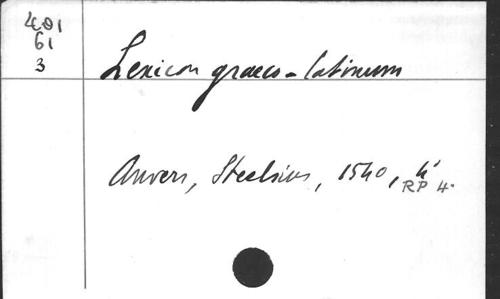 4001
61
3
Lexicon graeco-latinum
Anvers, Steelsius, 1540, 4°
RP 4.